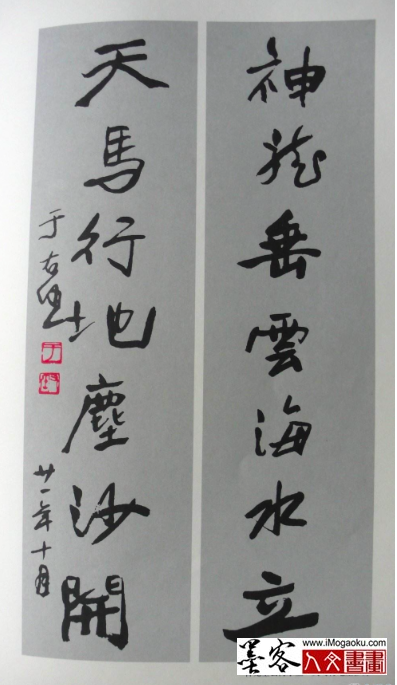 神龍垂雲海水立
天馬行地塵沙開
于右任
廿一年十月
墨客
www.iMogaoku.com
人文書畫